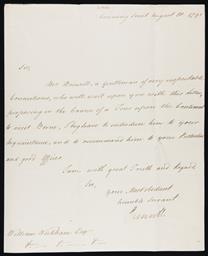 Downing Street August 18. 1795
Sir,
Mr Boswell, a gentleman of very respectable
Connections, who will wait upon you with this letter,
proposing in the course of a Tour upon the Continent
to visit Berne, I beg leave to introduce him to your
Acquaintance, and to recommend him to your Protection
and good Offices.
I am with great Truth and Regard
Sir,
your Most obedient
humble Servant
Grenville
William Wickham Esqr